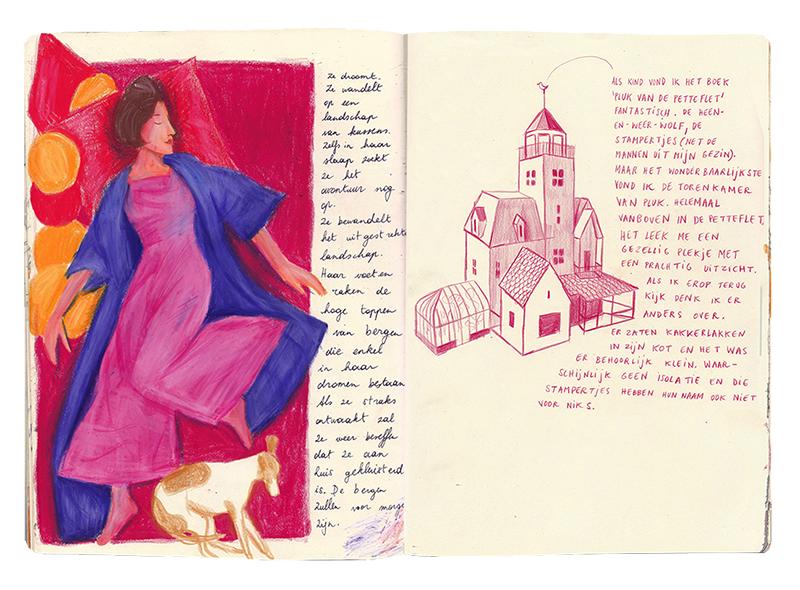 ze droomt.
Ze wandelt
op een
landschap
van kussens.
Zelfs in haar
slaap zoekt
ze het
avontuur nog
op.
ze bewandelt
het uitgestrekte
landschap.
Haar voeten
raken de
hoge toppen
van bergen
die enkel
in haar
dromen bestaan
Als ze straks
ontwaakt zal
ze weer beseffen
dat ze aan
huis gekluisterd
is. De bergen
zullen voor morgen
zijn.
ALS KIND VOND IK HET BOEK
'PLUK VAN DE PETTEFLET'
FANTASTISCH. DE HEEN-
EN-WEER-WOLF, DE
STAMPERTJES (NET DE
MANNEN UIT MIJN GEZIN).
MAAR HET WONDERBAARLIJKSTE
VOND IK DE TORENKAMER
VAN PLUK. HELEMAAL
VANBOVEN IN DE PETTEFLET.
HET LEEK ME EEN
GEZELLIG PLEKJE MET
EEN PRACHTIG UITZICHT.
ALS IK EROP TERUG
KIJK DENK IK ER
ANDERS OVER.
ER ZATEN KAKKERLAKKEN
IN ZIJN KOT EN HET WAS
ER BEHOORLIJK KLEIN. WAAR-
SCHIJNLIJK GEEN ISOLATIE EN DIE
STAMPERTJES HEBBEN HUN NAAM OOK NIET
VOOR NIKS.